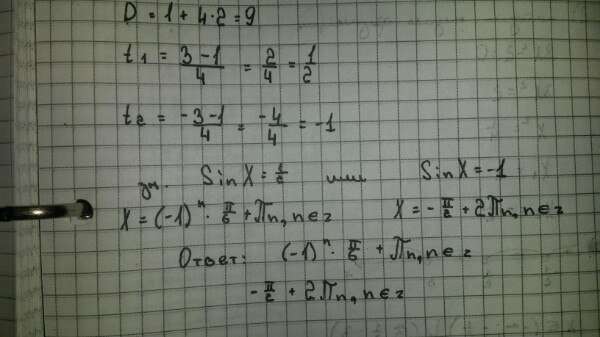 D = 1 + 4·2 = 9
t₁ = (3-1)/4 = 2/4 = 1/2
t₂ = (-3-1)/4 = -4/4 = -1
Sin X = 1/2 или Sin X = -1
X = (-1)ⁿ · π/6 + πn, n∈z X = -π/2 + 2πn, n∈z
Ответ: (-1)ⁿ · π/6 + πn, n∈z
-π/2 + 2πn, n∈z